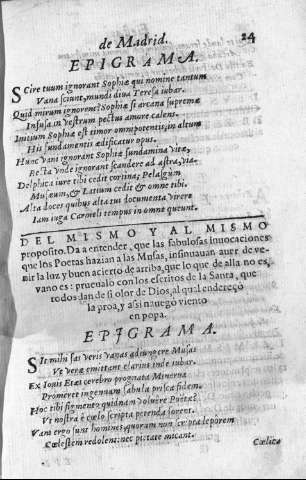 de Madrid. 24
EPIGRAMA.
Scire tuum ignorant Sophiæ qui nomine tantum
Vana sciunt, mundi diua Teresa iubar.
Quid mirum ignorent? Sophiæ si arcana supremæ
Infusa in vestrum pectus amore calent.
Initium Sophiæ est timor omnipotentis, in altum
His fundamentis ædificatur opus.
Hunc vani ignorant Sophiæ fundamina vitæ,
Recta vnde ignorant scandere ad astra, via.
Delphica iure tibi cedit cortina; Pelasgum
Musæum, & Latium cedit & omne tibi.
Alta docet quibus alta tuis documenta virere
Iam iuga Carmeli tempus in omne queunt.
DEL MISMO Y AL MISMO
proposito. Da a entender, que las fabulosas inuocaciones
que los Poetas hazian a las Musas, insinuauan auer de ve-
nir la luz, y buen acierto de arriba, que lo que de alla no es,
vano es: prueualo con los escritos de la Santa, que
todos dan de si olor de Dios, al qual endereçò
la proa, y assi nauegò viento
en popa.
EPIGRAMA.
Sit mihi fas veris vanas adiungere Musas
Vt veræ emittant clarius inde iubar.
Ex Iouis &tas cerebro prognata Minerua
Promeret ingenium fabula prisca fidem.
Hoc tibi figmento quidnam voluere Poëtæ?
Vt nostra è cælo scripta petenda forent.
Vani ergo sunt homines, quorum non scripta leporem
Cœlestem redolent: nec pietate micant.
Cœlica